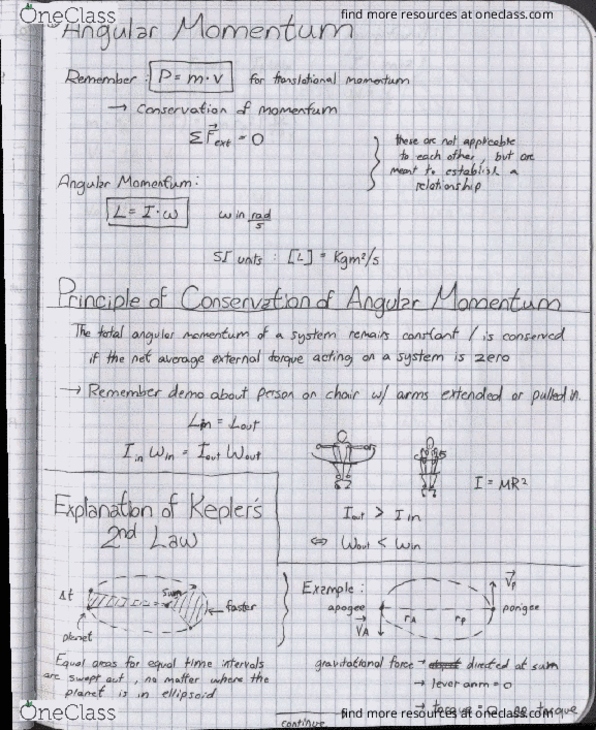 OneClass
find more resources at oneclass.com
Angular Momentum
Remember: P = m·v for translational momentum
→ Conservation of momentum
ΣF⃗ext = 0
these are not applicable
to each other, but are
meant to establish a
relationship
Angular Momentum:
L = I·ω ω in rad/s
SI units: [L] = Kgm²/s
Principle of Conservation of Angular Momentum
The total angular momentum of a system remains constant / is conserved
if the net average external torque acting on a system is zero
→ Remember demo about person on chair w/ arms extended or pulled in.
Lin = Lout
Iin ωin = Iout ωout
I = MR²
Iout > Iin
⇔ ωout < ωin
Explanation of Kepler's
2nd Law
Δt
sun
faster
planet
Equal areas for equal time intervals
are swept out, no matter where the
planet is in ellipsoid
Example:
apogee
V⃗A
rA
rp
V⃗p
perigee
gravitational force → directed at sun
→ lever arm = 0
→ torque = 0 torque
continue
OneClass
find more resources at oneclass.com